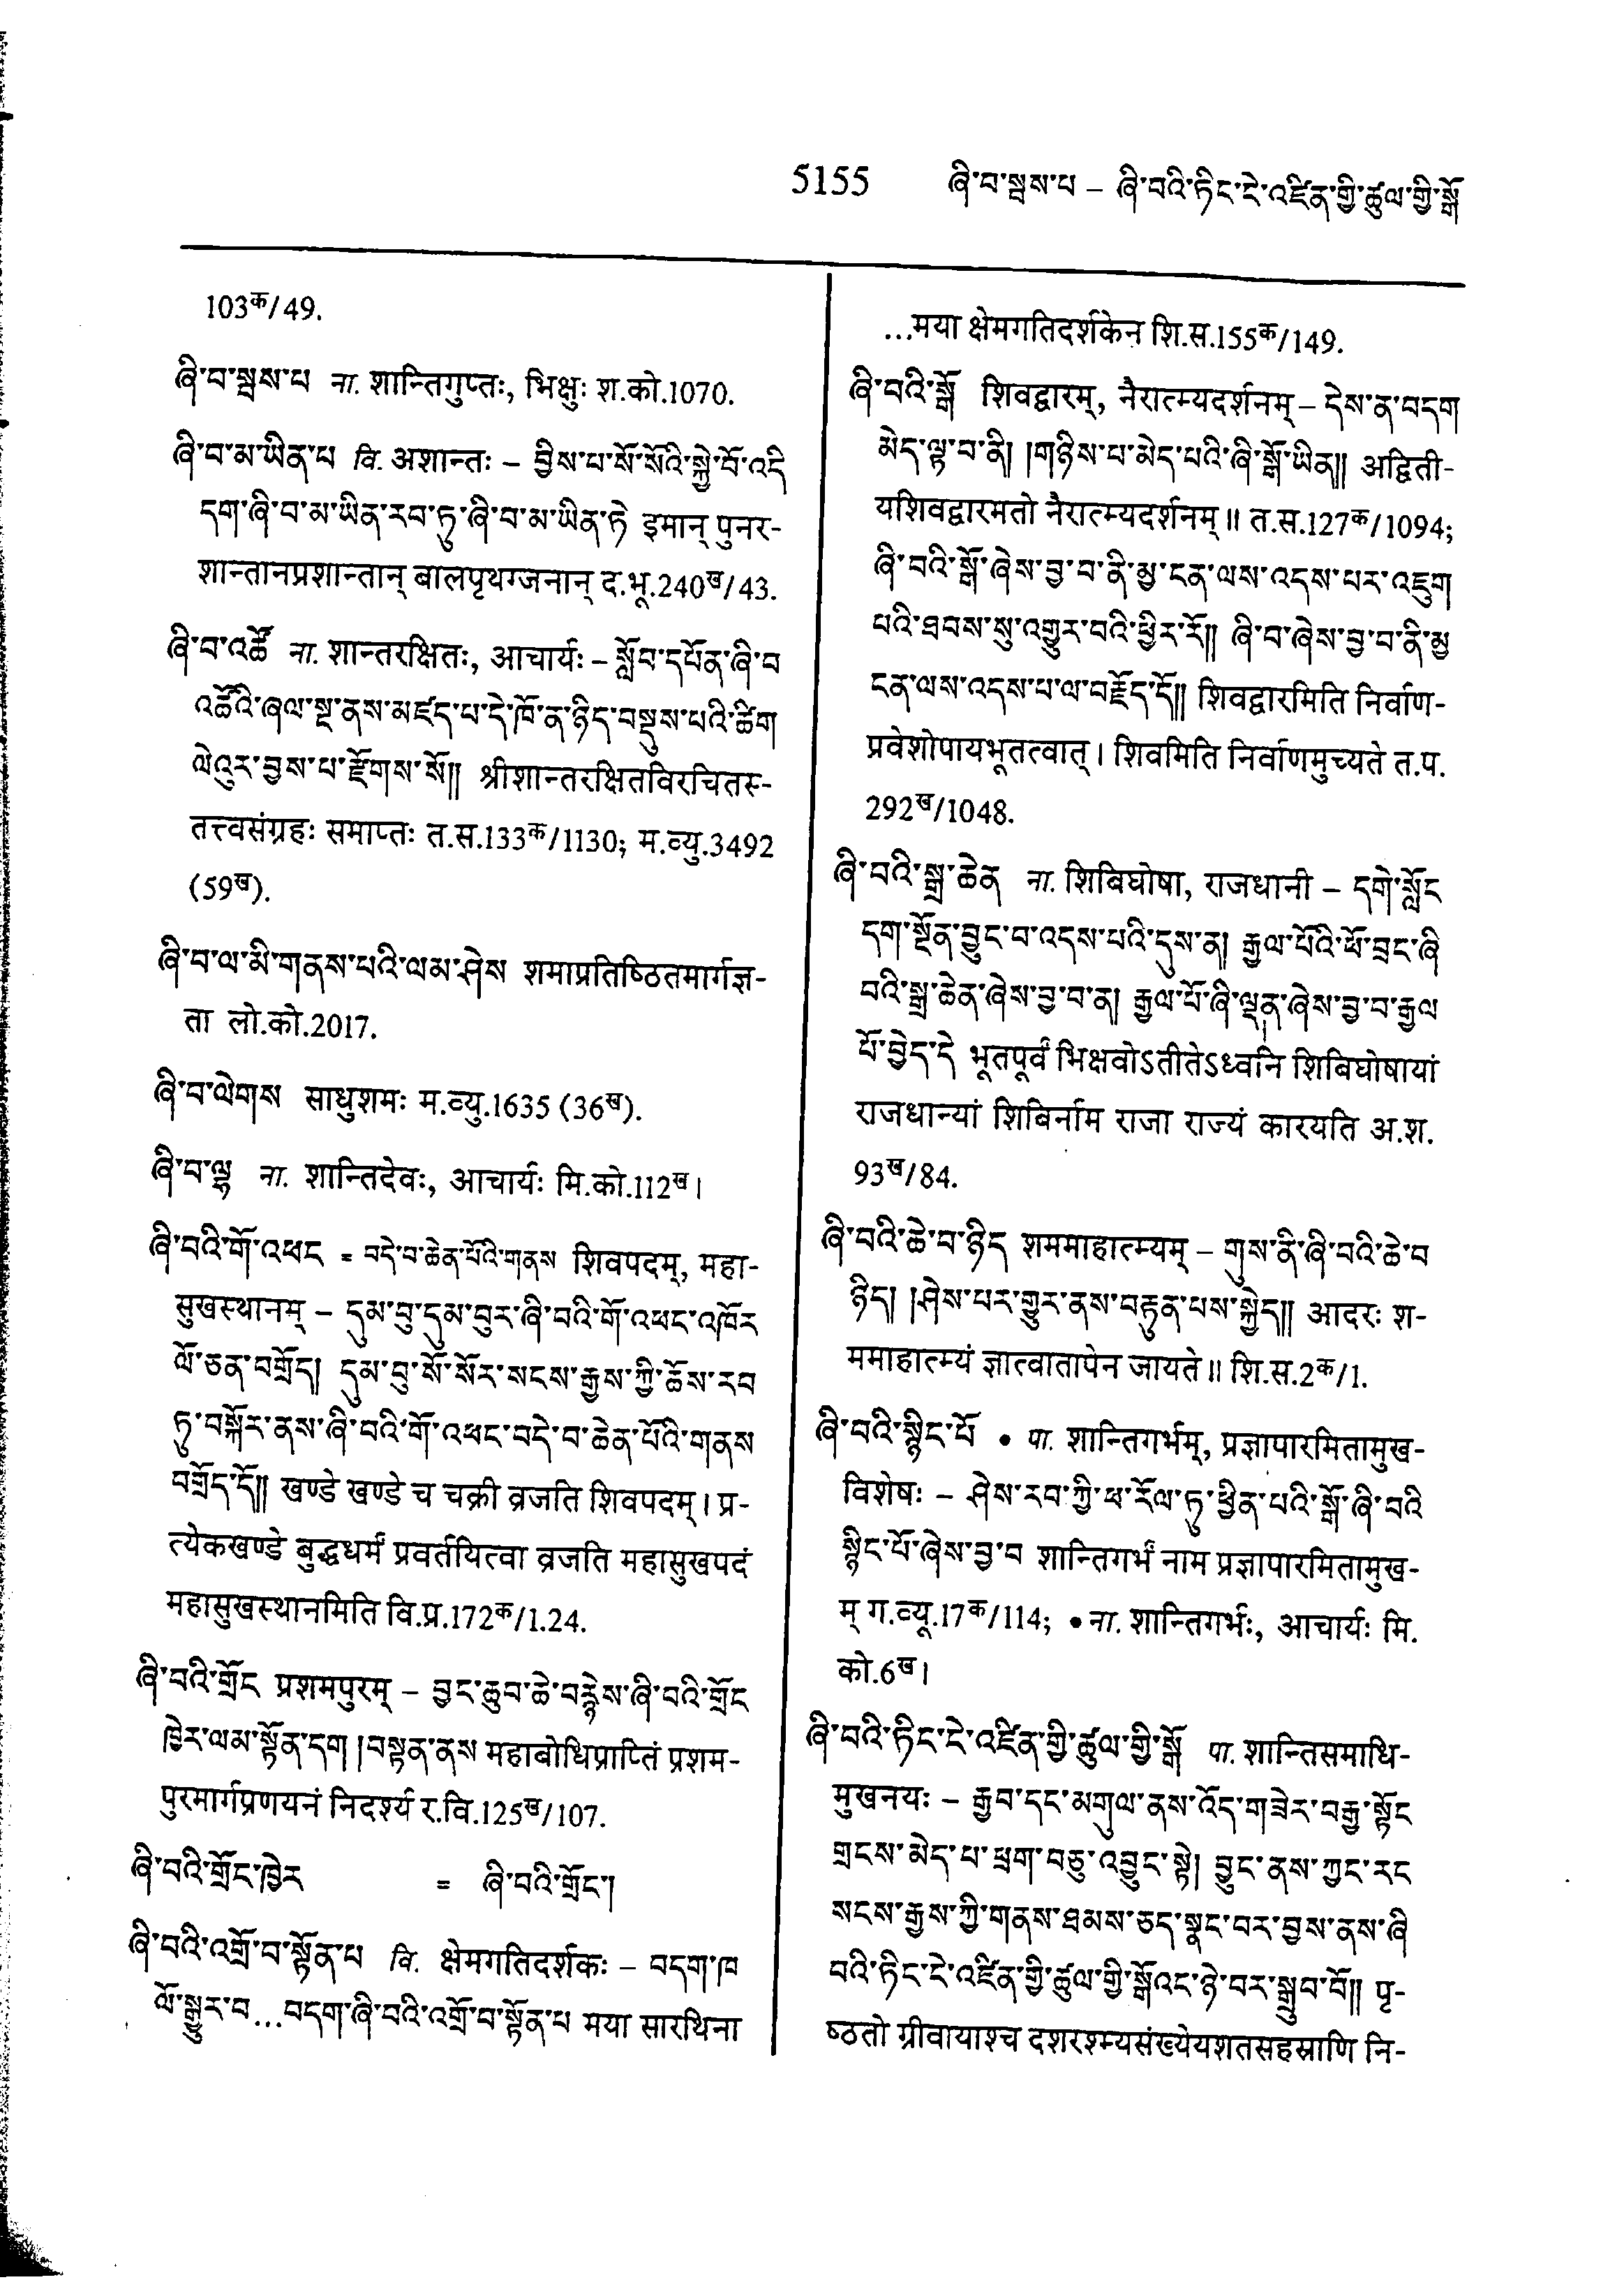 5155 ཞི་བ་སྦས་པ – ཞི་བའི་ཏིང་ངེ་འཛིན་གྱི་ཚུལ་གྱི་སྒོ
103क/49.
ཞི་བ་སྦས་པ ना. शान्तिगुप्तः, भिक्षुः श.को.1070.
ཞི་བ་མ་ཡིན་པ वि. अशान्तः – བྱིས་པ་སོ་སོའི་སྐྱེ་བོ་འདི
དག་ཞི་བ་མ་ཡིན་རབ་ཏུ་ཞི་བ་མ་ཡིན་ཏེ इमान् पुनर-
शान्तानप्रशान्तान् बालपृथग्जनान् द.भू.240ख/43.
ཞི་བ་འཚོ ना. शान्तरक्षितः, आचार्यः – སློབ་དཔོན་ཞི་བ
འཚོའི་ཞལ་སྔ་ནས་མཛད་པ་དེ་ཁོ་ན་ཉིད་བསྡུས་པའི་ཚིག
ལེའུར་བྱས་པ་རྫོགས་སོ།། श्रीशान्तरक्षितविरचितस्-
तत्त्वसंग्रहः समाप्तः त.स.133क/1130; म.व्यु.3492
(59ख).
ཞི་བ་ལ་མི་གནས་པའི་ལམ་ཤེས शमाप्रतिष्ठितमार्गज्ञ-
ता लो.को.2017.
ཞི་བ་ལེགས साधुशमः म.व्यु.1635 (36ख).
ཞི་བ་ལྷ ना. शान्तिदेवः, आचार्यः मि.को.112ख।
ཞི་བའི་གོ་འཕང = བདེ་བ་ཆེན་པོའི་གནས शिवपदम्, महा-
सुखस्थानम् – དུམ་བུ་དུམ་བུར་ཞི་བའི་གོ་འཕང་འཁོར
ལོ་ཅན་བགྲོད། དུམ་བུ་སོ་སོར་སངས་རྒྱས་ཀྱི་ཆོས་རབ
ཏུ་བསྐོར་ནས་ཞི་བའི་གོ་འཕང་བདེ་བ་ཆེན་པོའི་གནས
བགྲོད་དོ།། खण्डे खण्डे च चक्री व्रजति शिवपदम्। प्र-
त्येकखण्डे बुद्धधर्मं प्रवर्तयित्वा व्रजति महासुखपदं
महासुखस्थानमिति वि.प्र.172क/1.24.
ཞི་བའི་གྲོང प्रशमपुरम् – བྱང་ཆུབ་ཆེ་བརྙེས་ཞི་བའི་གྲོང
ཁྱེར་ལམ་སྟོན་དག །བསྟན་ནས महाबोधिप्राप्तिं प्रशम-
पुरमार्गप्रणयनं निदर्श्य र.वि.125ख/107.
ཞི་བའི་གྲོང་ཁྱེར = ཞི་བའི་གྲོང་།
ཞི་བའི་འགྲོ་བ་སྟོན་པ वि. क्षेमगतिदर्शकः – བདག་ཁ
ལོ་སྒྱུར་བ...བདག་ཞི་བའི་འགྲོ་བ་སྟོན་པ मया सारथिना
...मया क्षेमगतिदर्शकेन शि.स.155क/149.
ཞི་བའི་སྒོ शिवद्वारम्, नैरात्म्यदर्शनम् – དེས་ན་བདག
མེད་ལྟ་བ་ནི། །གཉིས་པ་མེད་པའི་ཞི་སྒོ་ཡིན།། अद्विती-
यशिवद्वारमतो नैरात्म्यदर्शनम्॥ त.स.127क/1094;
ཞི་བའི་སྒོ་ཞེས་བྱ་བ་ནི་མྱ་ངན་ལས་འདས་པར་འཇུག
པའི་ཐབས་སུ་འགྱུར་བའི་ཕྱིར་རོ།། ཞི་བ་ཞེས་བྱ་བ་ནི་མྱ
ངན་ལས་འདས་པ་ལ་བརྗོད་དོ།། शिवद्वारमिति निर्वाण-
प्रवेशोपायभूतत्वात्। शिवमिति निर्वाणमुच्यते त.प.
292ख/1048.
ཞི་བའི་སྒྲ་ཆེན ना. शिबिघोषा, राजधानी – དགེ་སློང
དག་སྔོན་བྱུང་བ་འདས་པའི་དུས་ན། རྒྱལ་པོའི་ཕོ་བྲང་ཞི
བའི་སྒྲ་ཆེན་ཞེས་བྱ་བ་ན། རྒྱལ་པོ་ཞི་ལྡན་ཞེས་བྱ་བ་རྒྱལ
པོ་བྱེད་དེ भूतपूर्वं भिक्षवोऽतीतेऽध्वनि शिबिघोषायां
राजधान्यां शिबिर्नाम राजा राज्यं कारयति अ.श.
93ख/84.
ཞི་བའི་ཆེ་བ་ཉིད शममाहात्म्यम् – གུས་ནི་ཞི་བའི་ཆེ་བ
ཉིད། །ཤེས་པར་གྱུར་ནས་བརྟུན་པས་སྐྱེད།། आदरः श-
ममाहात्म्यं ज्ञात्वातापेन जायते॥ शि.स.2क/1.
ཞི་བའི་སྙིང་པོ • पा. शान्तिगर्भम्, प्रज्ञापारमितामुख-
विशेषः – ཤེས་རབ་ཀྱི་ཕ་རོལ་ཏུ་ཕྱིན་པའི་སྒོ་ཞི་བའི
སྙིང་པོ་ཞེས་བྱ་བ शान्तिगर्भं नाम प्रज्ञापारमितामुख-
म् ग.व्यू.17क/114; • ना. शान्तिगर्भः, आचार्यः मि.
को.6ख।
ཞི་བའི་ཏིང་ངེ་འཛིན་གྱི་ཚུལ་གྱི་སྒོ पा. शान्तिसमाधि-
मुखनयः – རྒྱབ་དང་མགུལ་ནས་འོད་གཟེར་བརྒྱ་སྟོང
གྲངས་མེད་པ་ཕྲག་བཅུ་འབྱུང་སྟེ། བྱུང་ནས་ཀྱང་རང
སངས་རྒྱས་ཀྱི་གནས་ཐམས་ཅད་སྣང་བར་བྱས་ནས་ཞི
བའི་ཏིང་ངེ་འཛིན་གྱི་ཚུལ་གྱི་སྒོའང་ཉེ་བར་སྒྲུབ་བོ།། पृ-
ष्ठतो ग्रीवायाश्च दशरश्म्यसंख्येयशतसहस्राणि नि-